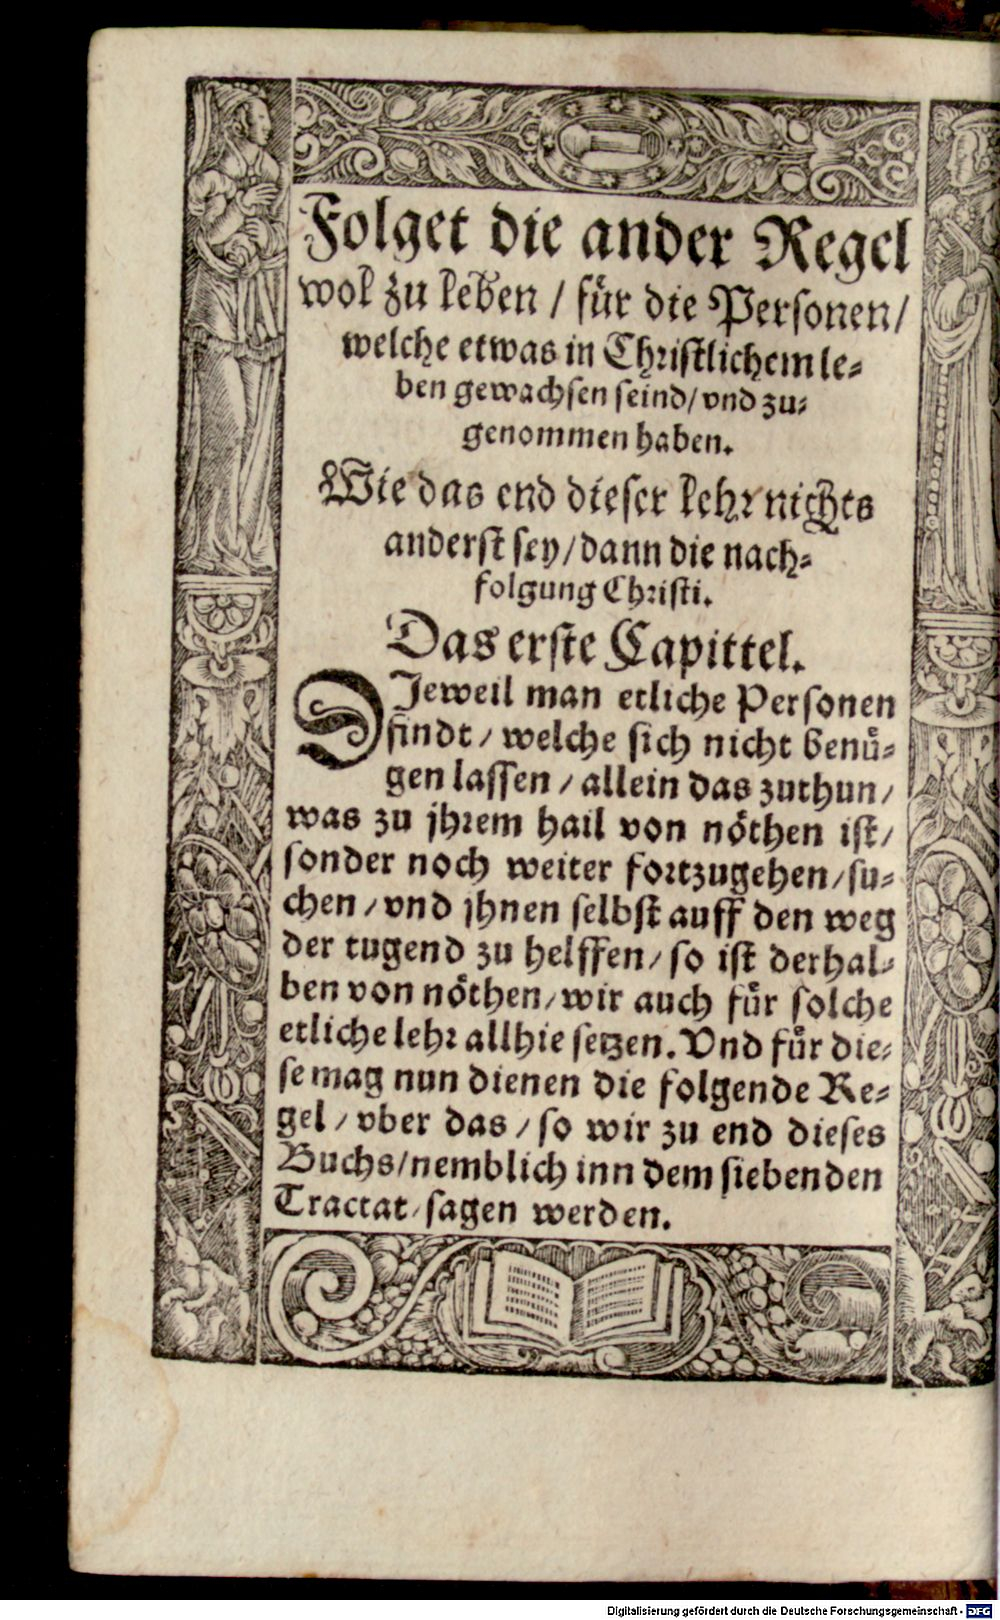 Folget die ander Regel
wol zu leben / für die Personen /
welche etwas in Christlichem le-
ben gewachsen seind / vnd zu-
genommen haben.
Wie das end dieser lehr nichts
anderst sey / dann die nach-
folgung Christi.
Das erste Capittel.
DJeweil man etliche Personen
findt / welche sich nicht benü-
gen lassen / allein das zuthun /
was zu jhrem hail von nöthen ist /
sonder noch weiter fortzugehen / su-
chen / vnd jhnen selbst auff den weg
der tugend zu helffen / so ist derhal-
ben von nöthen / wir auch für solche
etliche lehr allhie setzen. Vnd für die-
se mag nun dienen die folgende Re-
gel / vber das / so wir zu end dieses
Buchs / nemblich inn dem siebenden
Tractat / sagen werden.
Digitalisierung gefördert durch die Deutsche Forschungsgemeinschaft - DFG